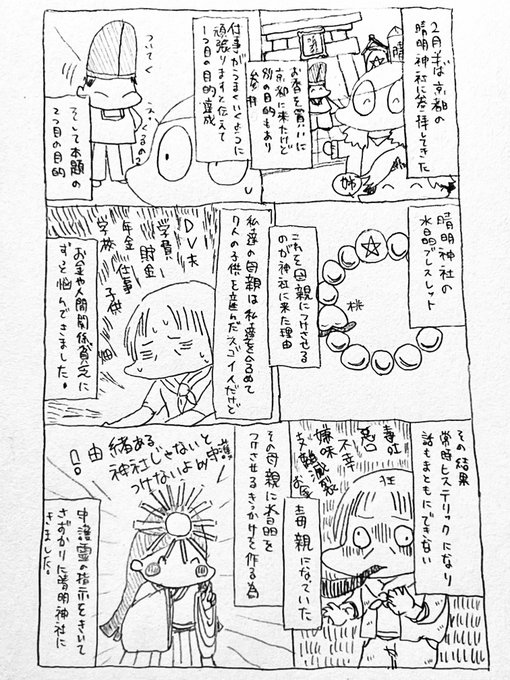 2月半ば京都の
晴明神社に参拝してきた
晴
姉
お香を買いに
京都に来たけど
別の目的もあり
参拝
仕事がうまくいくように
頑張りますと伝えて
1つ目の目的達成
ついてく
くるの?
そして本題の
2つ目の目的
晴明神社の
水晶ブレスレット
桃
これを母親につけさせる
のが神社に来た理由
私達の母親は私達を含めて
7人の子供を産んだスゴイ人だけど
DV夫
学費
貯金
年金
仕事
学校
子供
畑
お金や人間関係貧乏に
ずっと悩んできました。
その結果
常時ヒステリックになり
話もまともにできない
毒吐
悪口
不幸
嫌味
支離滅裂
狂
毒親になっていた
その母親に水晶を
つけさせるきっかけを作る為
由緒ある
神社じゃないと
つけないよ
by守護
守護霊の指示をきいて
さずかりに晴明神社に
きました。